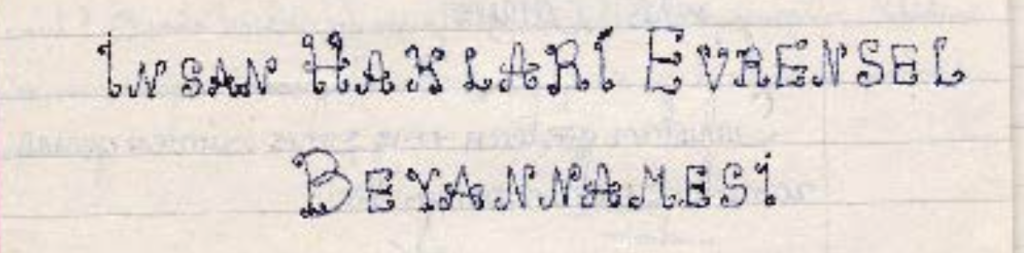 İNSAN HAKLARİ EVRENSEL
BEYANNAMESİ